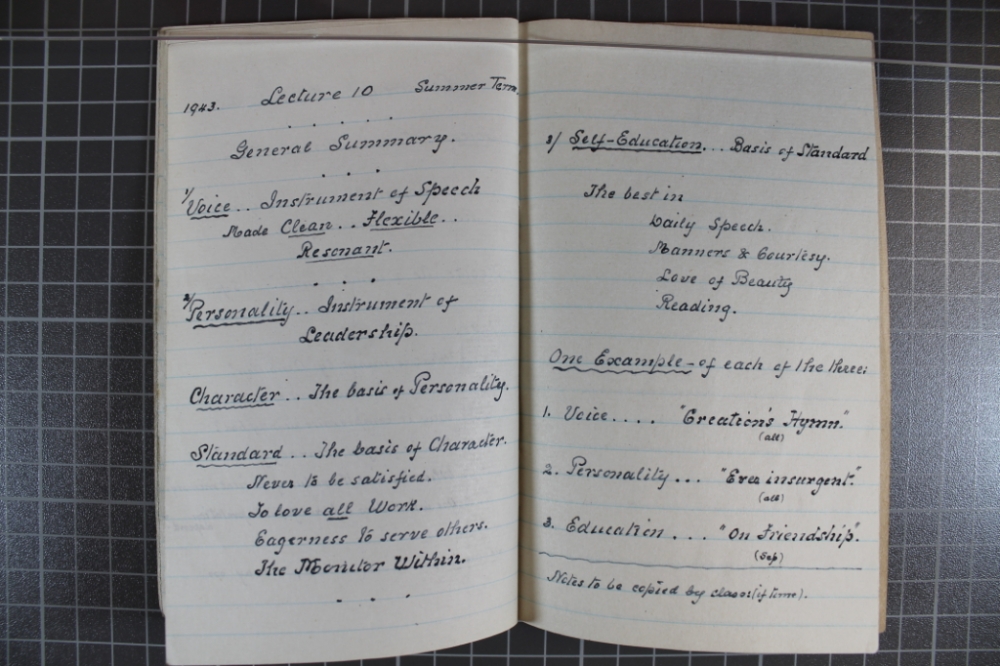 1943. Lecture 10 Summer Term.
. . . . .
General Summary.
. . .
1/ Voice.. Instrument of Speech
Made Clean.. Flexible..
Resonant.
. . .
2/ Personality.. Instrument of
Leadership.
Character.. The basis of Personality.
Standard.. The basis of Character.
Never to be satisfied.
To love all Work.
Eagerness to serve others.
The Monitor Within.
. . .
3/ Self-Education... Basis of Standard
The best in
Daily Speech.
Manners & Courtesy.
Love of Beauty
Reading.
One Example - of each of the three:
1. Voice.... "Creation's Hymn."
(all)
2. Personality... "Ever insurgent."
(all)
3. Education.... "On Friendship".
(Sep)
Notes to be copied by class (if time).